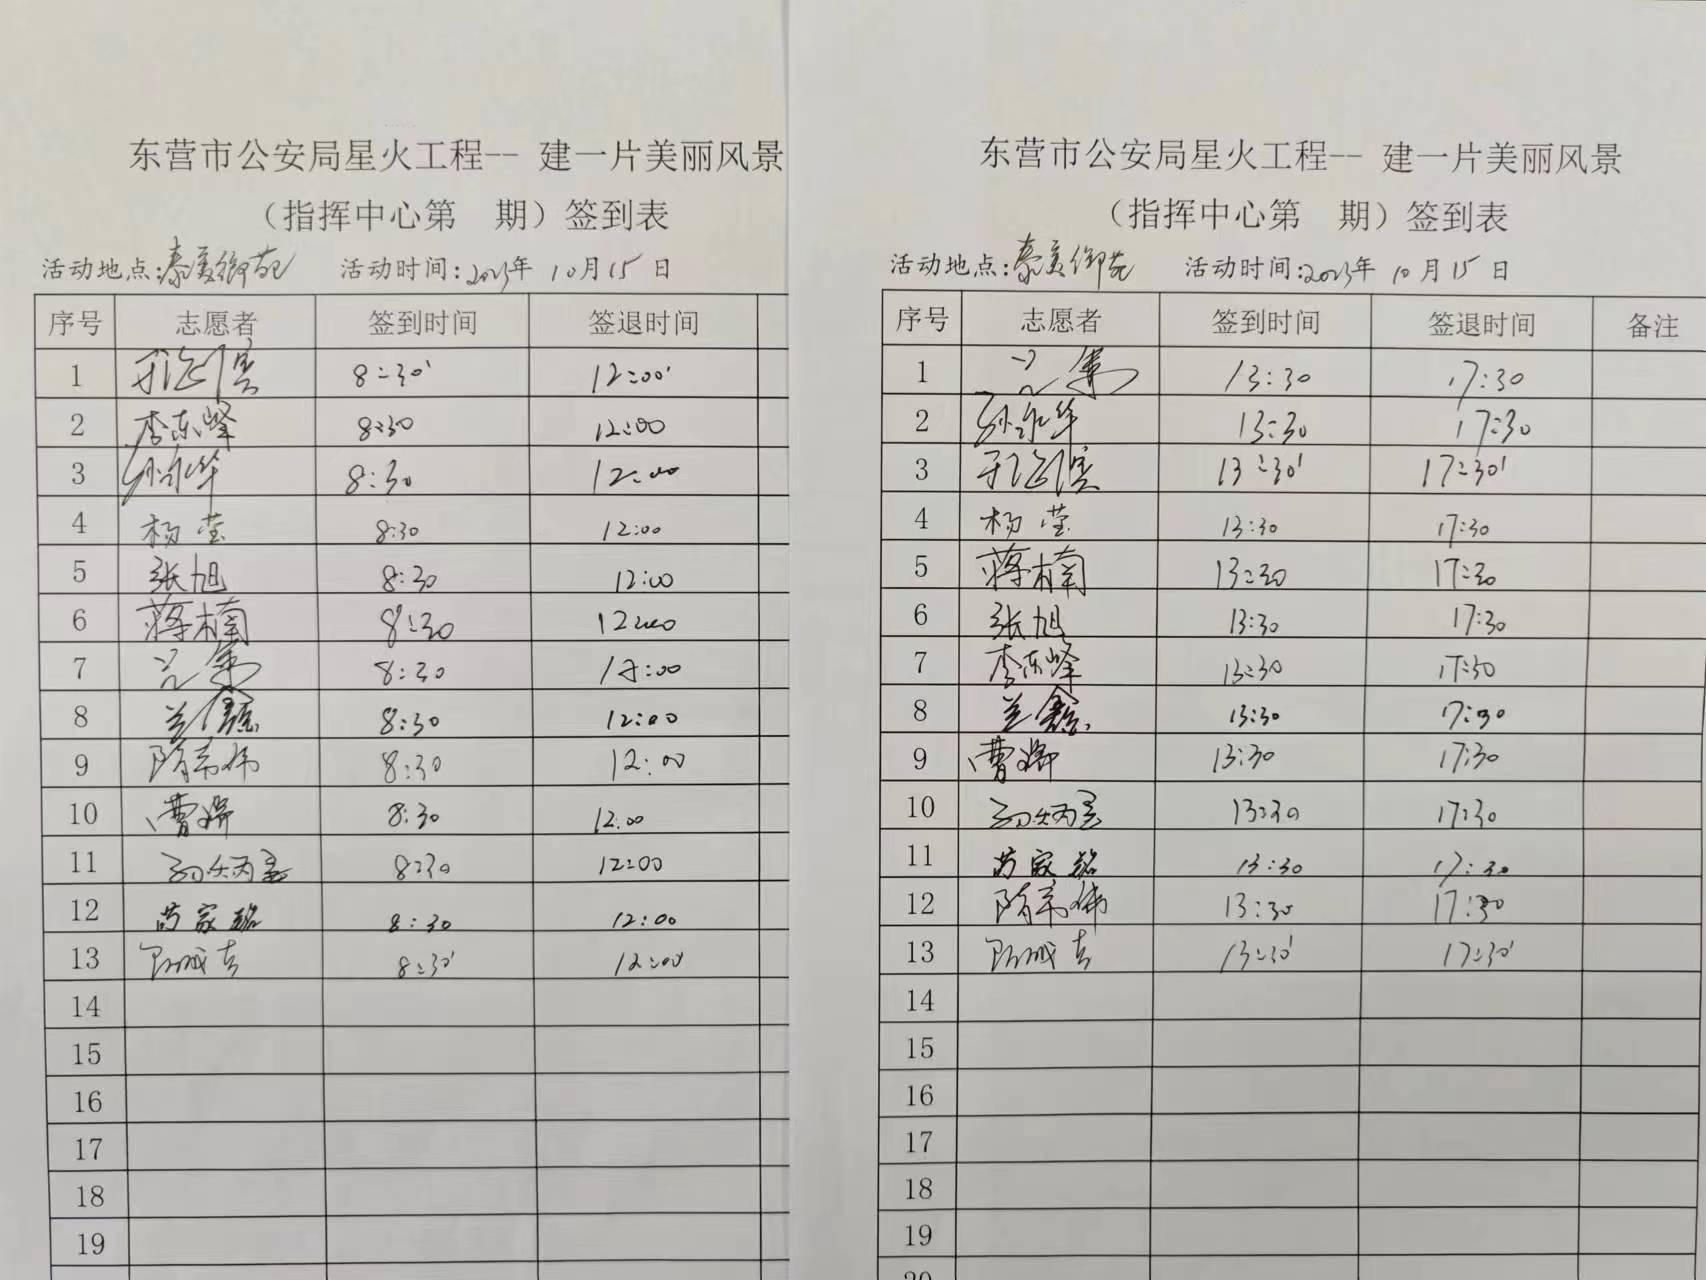 东营市公安局星火工程-- 建一片美丽风景
（指挥中心第 期）签到表
活动地点: 活动时间: 2023年 10月 15日
序号 志愿者 签到时间 签退时间
1 8:30' 12:00'
2 李东峰 8:30 12:00
3 孙永华 8:30 12:00
4 杨莹 8:30 12:00
5 张旭 8:30 12:00
6 蒋楠 8:30 12:00
7 8:30 12:00
8 兰鑫 8:30 12:00
9 隋韦炜 8:30 12:00
10 曹娜 8:30 12:00
11 8:30 12:00
12 苗家铭 8:30 12:00
13 8:30' 12:00'
14
15
16
17
18
19
东营市公安局星火工程-- 建一片美丽风景
（指挥中心第 期）签到表
活动地点: 活动时间: 2023年 10月 15日
序号 志愿者 签到时间 签退时间 备注
1 13:30 17:30
2 孙永华 13:30 17:30
3 13:30' 17:30'
4 杨莹 13:30 17:30
5 蒋楠 13:30 17:30
6 张旭 13:30 17:30
7 李东峰 13:30 17:30
8 兰鑫 13:30 17:30
9 曹娜 13:30 17:30
10 13:30 17:30
11 苗家铭 13:30 17:30
12 13:30 17:30
13 13:30' 17:30'
14
15
16
17
18
19
20